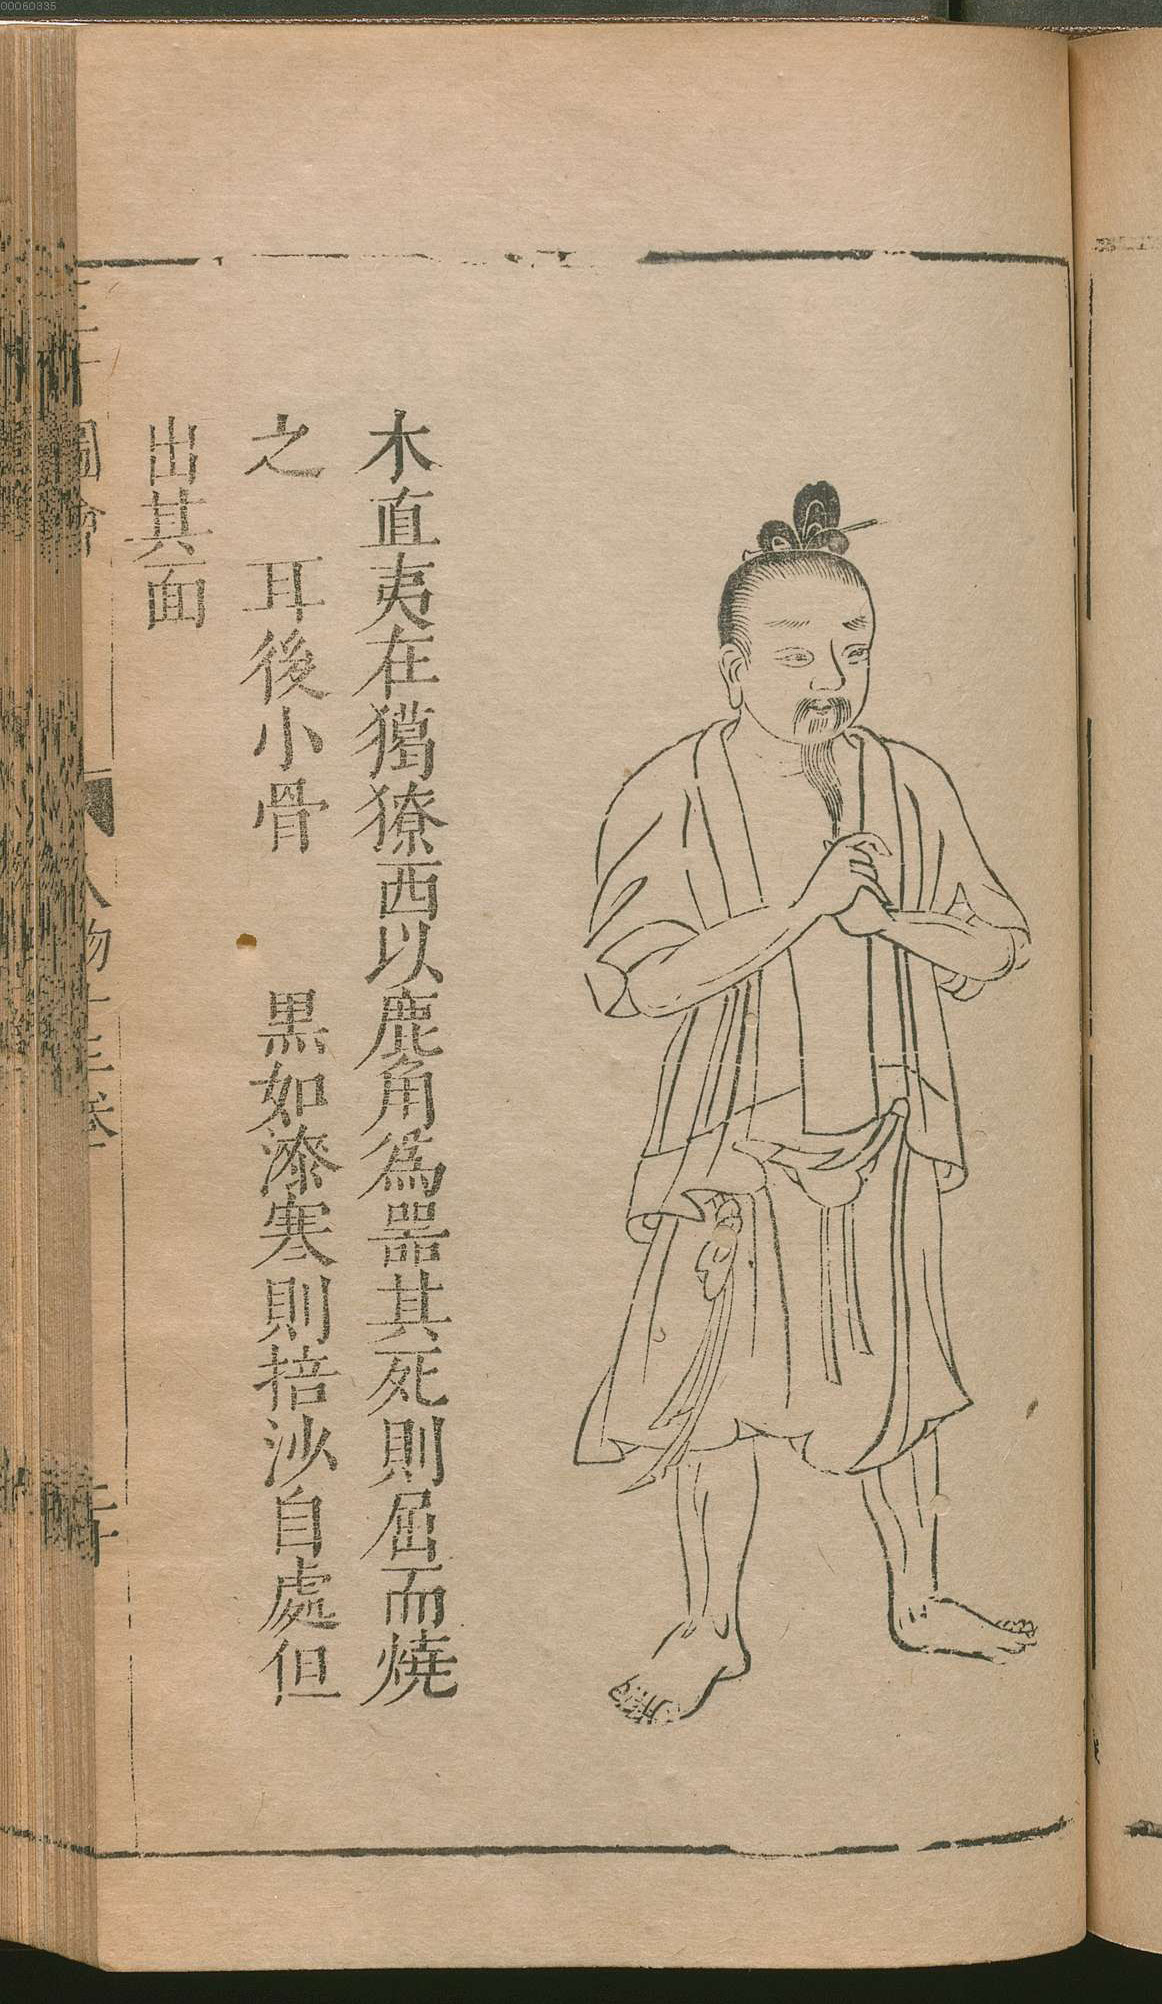 木直夷在獦獠西以鹿角為噐其死則屈而燒
之　耳後小骨　　黒如漆寒則掊沙自處但
出其面
圖會
人物十三卷
00060335